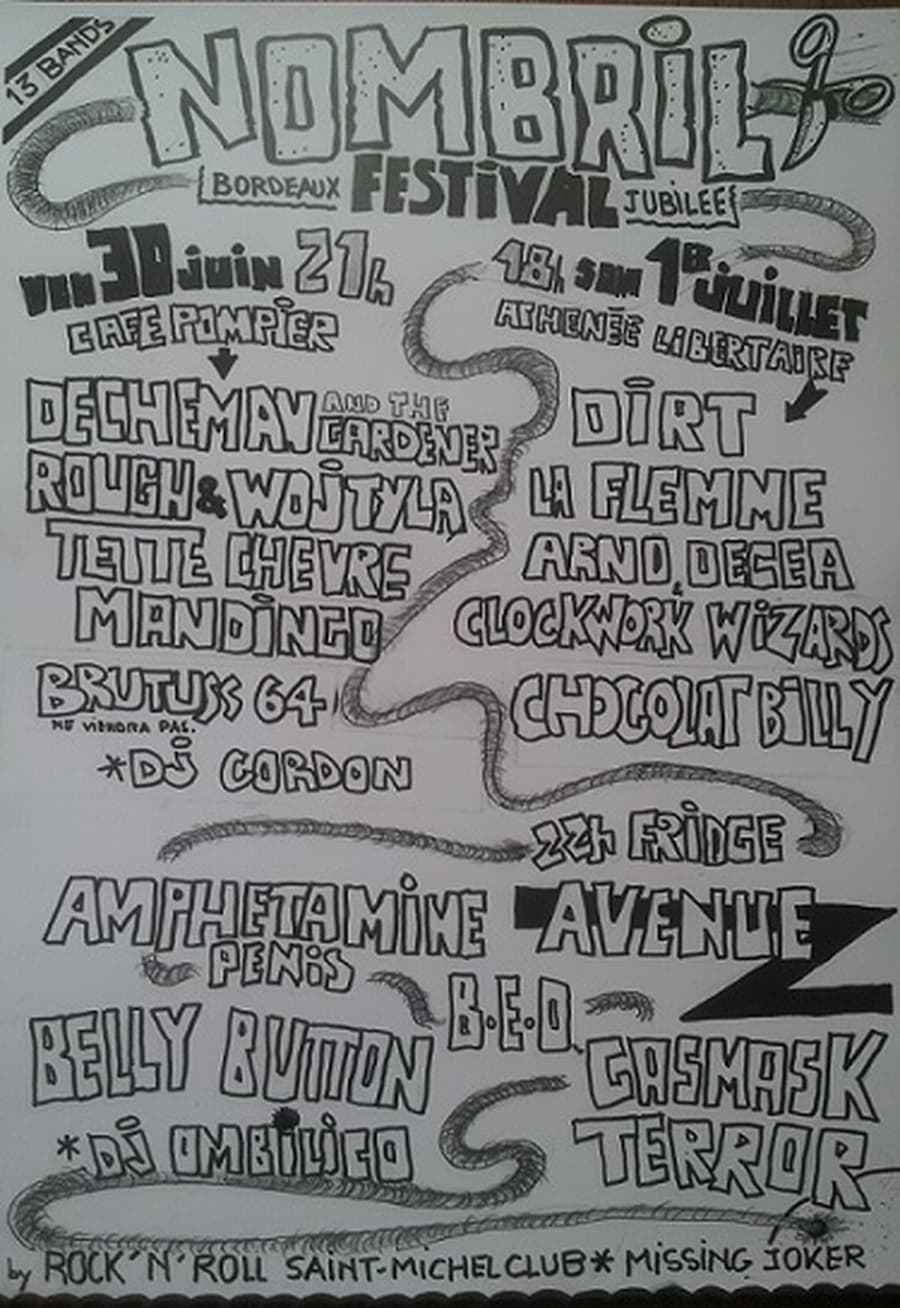 13 BANDS
NOMBRiL
BORDEAUX FESTiVAL JUBiLEE
VEN 30 juiN 21h
CAFE POMPiER
DECHEMAN AND THE GARDENER
ROUGH & WOJTYLA
TETTE CHEVRE
MANDiNGO
BRUTUSS 64
NE ViENDRA PAS.
*DJ CORDON
18h SAM 1ER JUiLLET
ATHENÉE LiBERTAiRE
DiRT
LA FLEMME
ARNO DEGEA
CLOCKWORK WiZARDS
CHOCOLAT BiLLY
22h FRiDGE
AMPHETAMiNE PENiS
AVENUE Z
B.E.D.
BELLY BUTTON
GASMASK TERROR
*DJ OMBiLiCO
by ROCK'N'ROLL SAiNT-MiCHEL CLUB* MiSSiNG JOKER